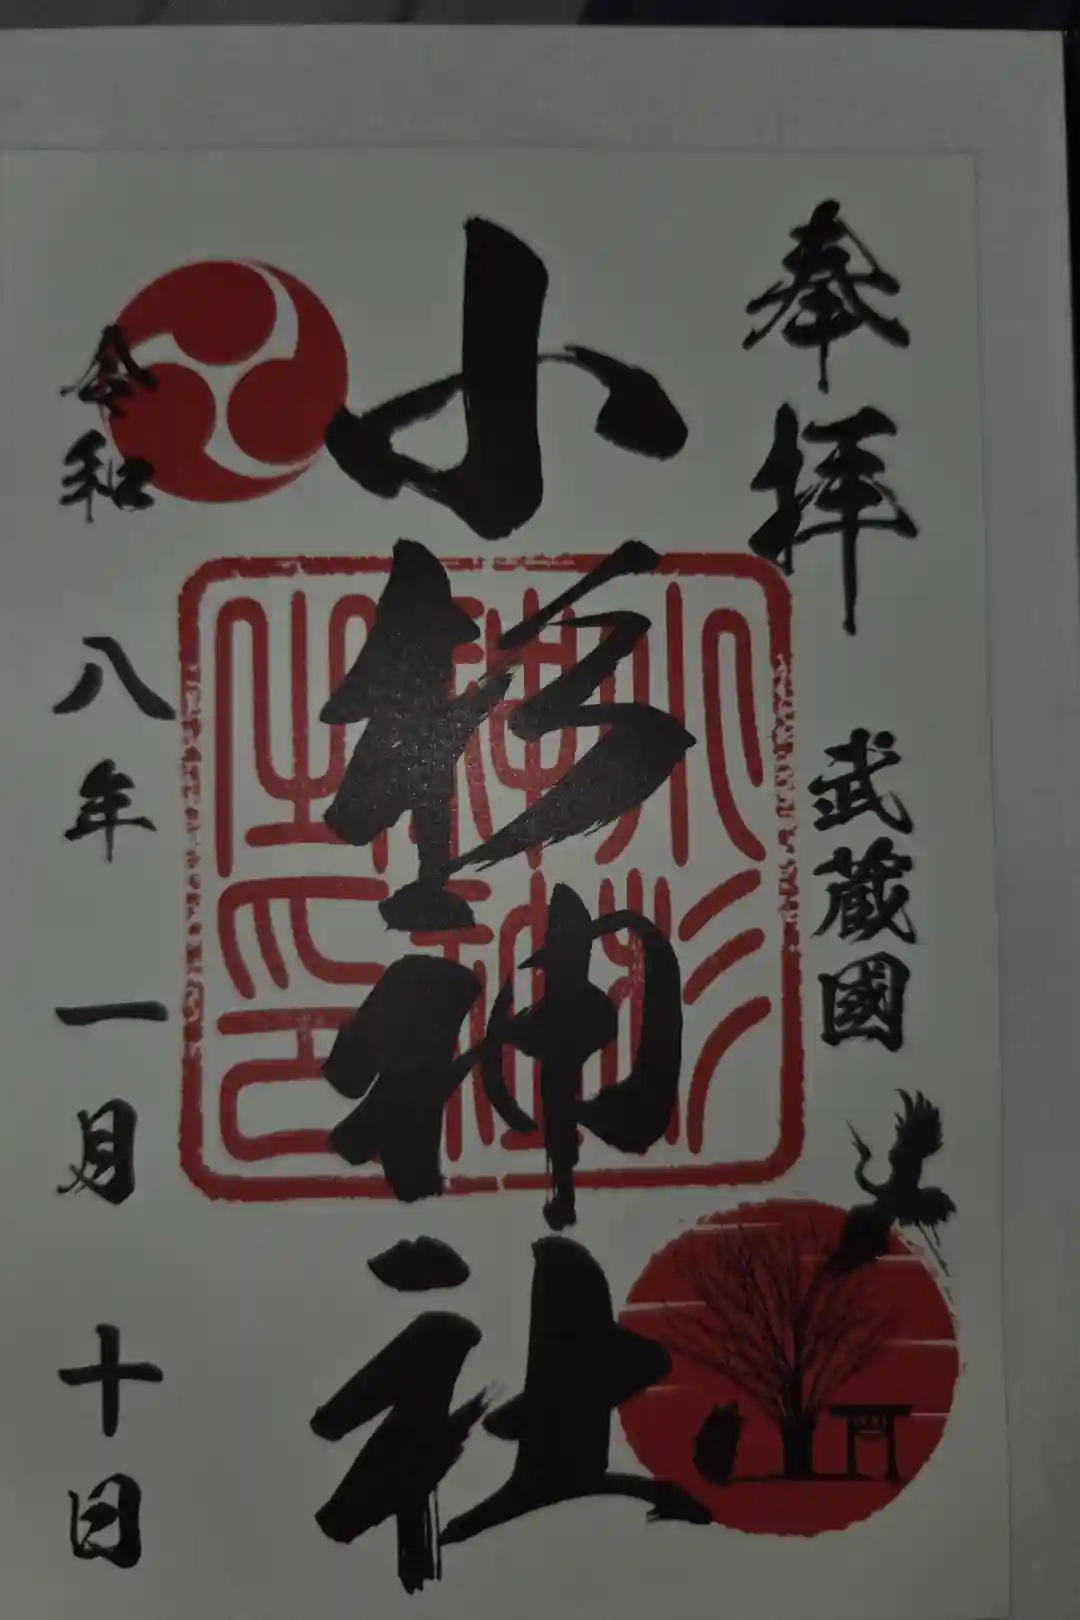 奉拝
武蔵國
小杉神社
小杉神社之印
令和八年一月十日